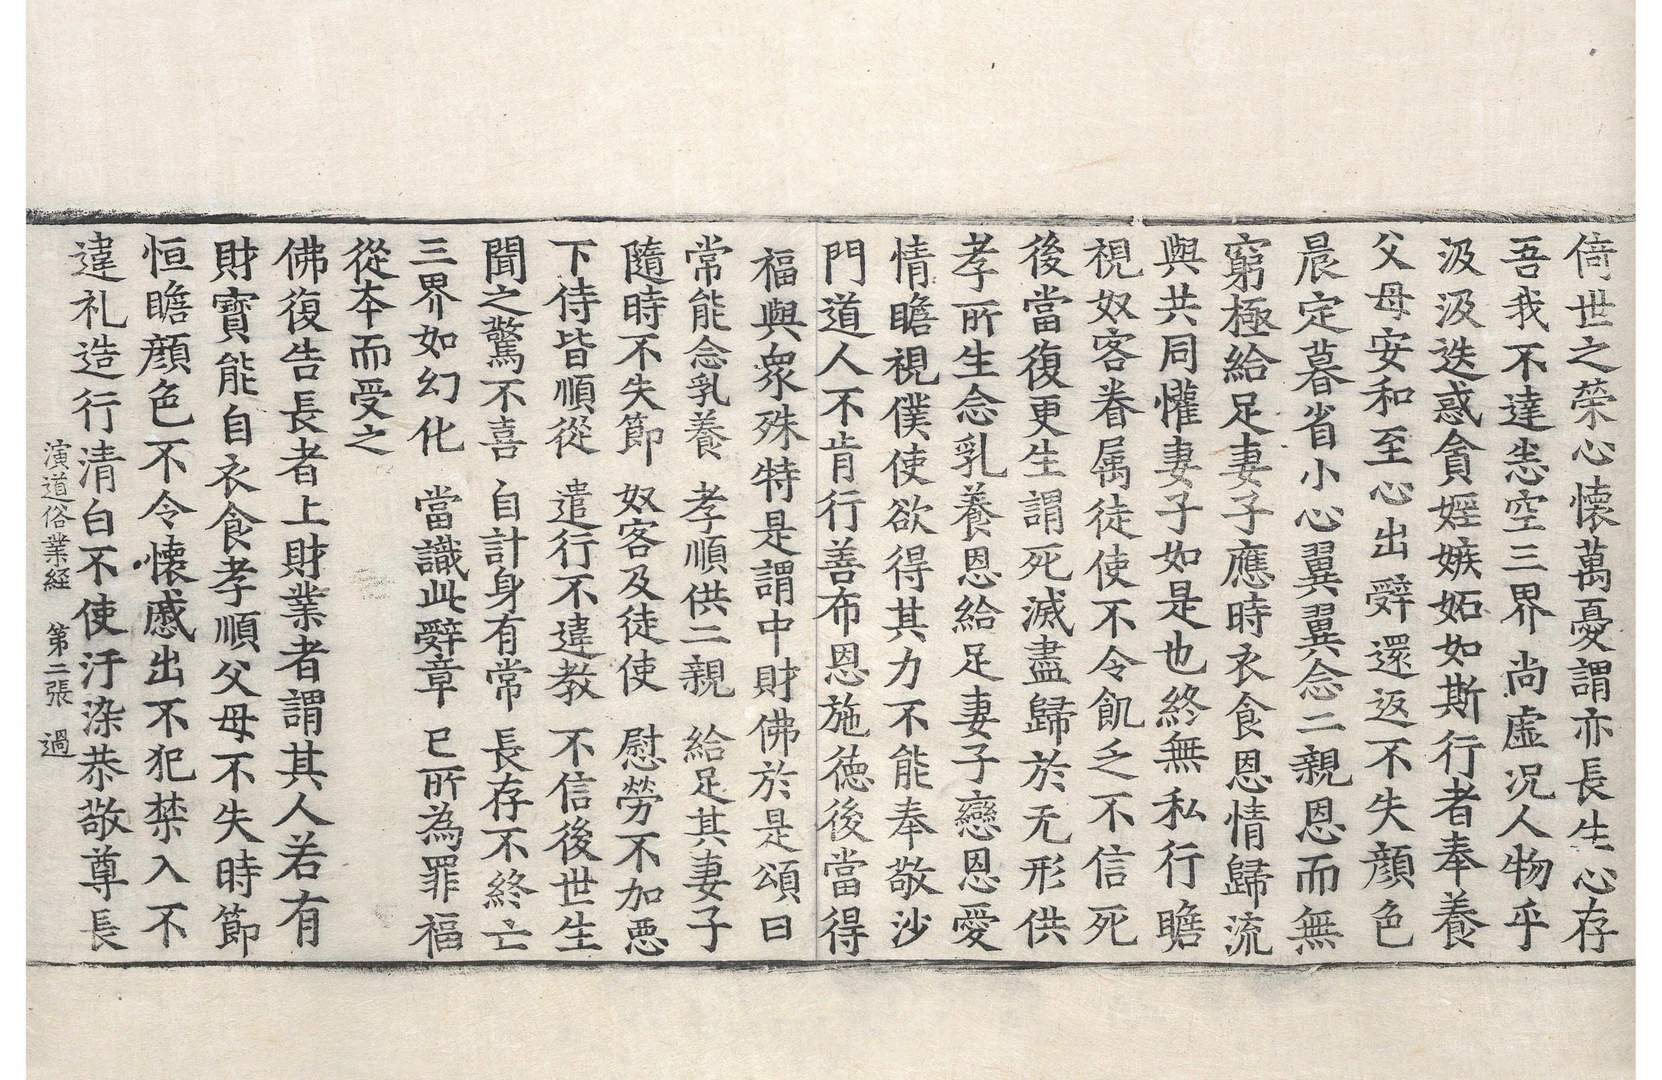 倚世之榮心懷萬憂謂亦長生心存
吾我不達恙空三界尚虛况人物乎
汲汲迭惑貪婬嫉妬如斯行者奉養
父母安和至心出辤還返不失顔色
晨定暮省小心翼翼念二親恩而無
窮極給足妻子應時衣食恩情歸流
與共同懽妻子如是也終無私行瞻
視奴客眷属徒使不令飢乏不信死
後當復更生謂死滅盡歸於无形供
孝所生念乳養恩給足妻子戀恩愛
情瞻視僕使欲得其力不能奉敬沙
門道人不肯行善布恩施德後當得
福與衆殊特是謂中財佛於是頌曰
常能念乳養 孝順供二親 給足其妻子
隨時不失節 奴客及徒使 慰勞不加惡
下待皆順從 遣行不違教 不信後世生
聞之驚不喜 自計身有常 長存不終亡
三界如幻化 當識此辤章 已所為罪福
從本而受之
佛復告長者上財業者謂其人若有
財寶能自衣食孝順父母不失時節
恒瞻顔色不令懷慼出不犯禁入不
違礼造行清白不使汙染恭敬尊長
演道俗業経 第二張 過